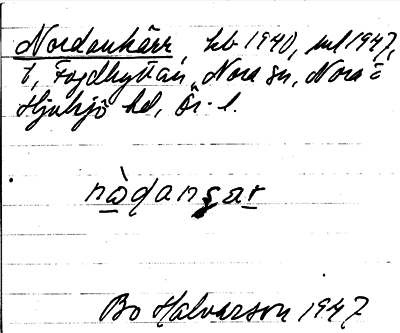 Nordankärr, hb 1940, ml 1947,
t, Fogdhyttan, Nora sn, Nora o
Hjulsjö hd, Ör. l.
nòḍanʂar
Bo Halvarson 1947